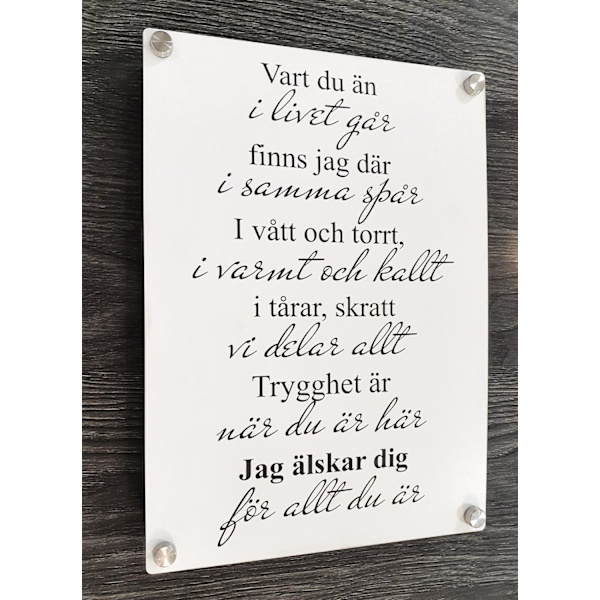 Vart du än
i livet går
finns jag där
i samma spår
I vått och torrt,
i varmt och kallt
i tårar, skratt
vi delar allt
Trygghet är
när du är här
Jag älskar dig
för allt du är